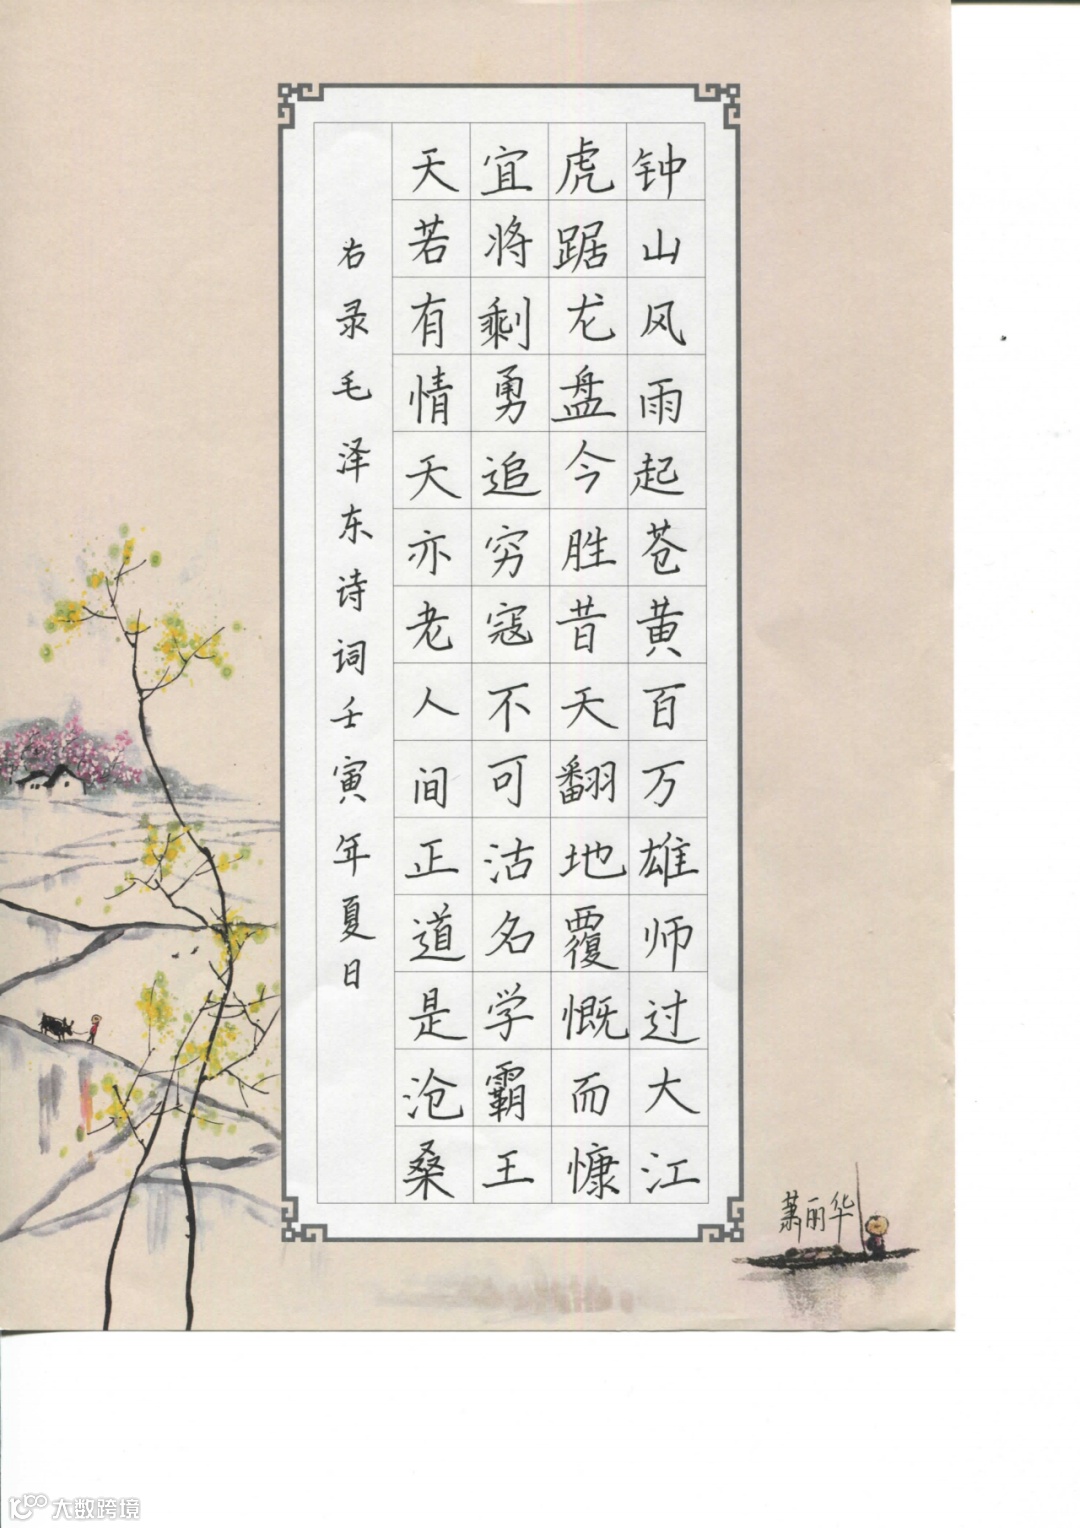 钟山风雨起苍黄百万雄师过大江
虎踞龙盘今胜昔天翻地覆慨而慷
宜将剩勇追穷寇不可沽名学霸王
天若有情天亦老人间正道是沧桑
右录毛泽东诗词壬寅年夏日
萧丽华
大数跨境